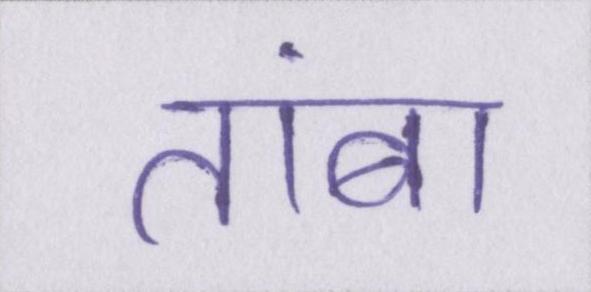 तांबा